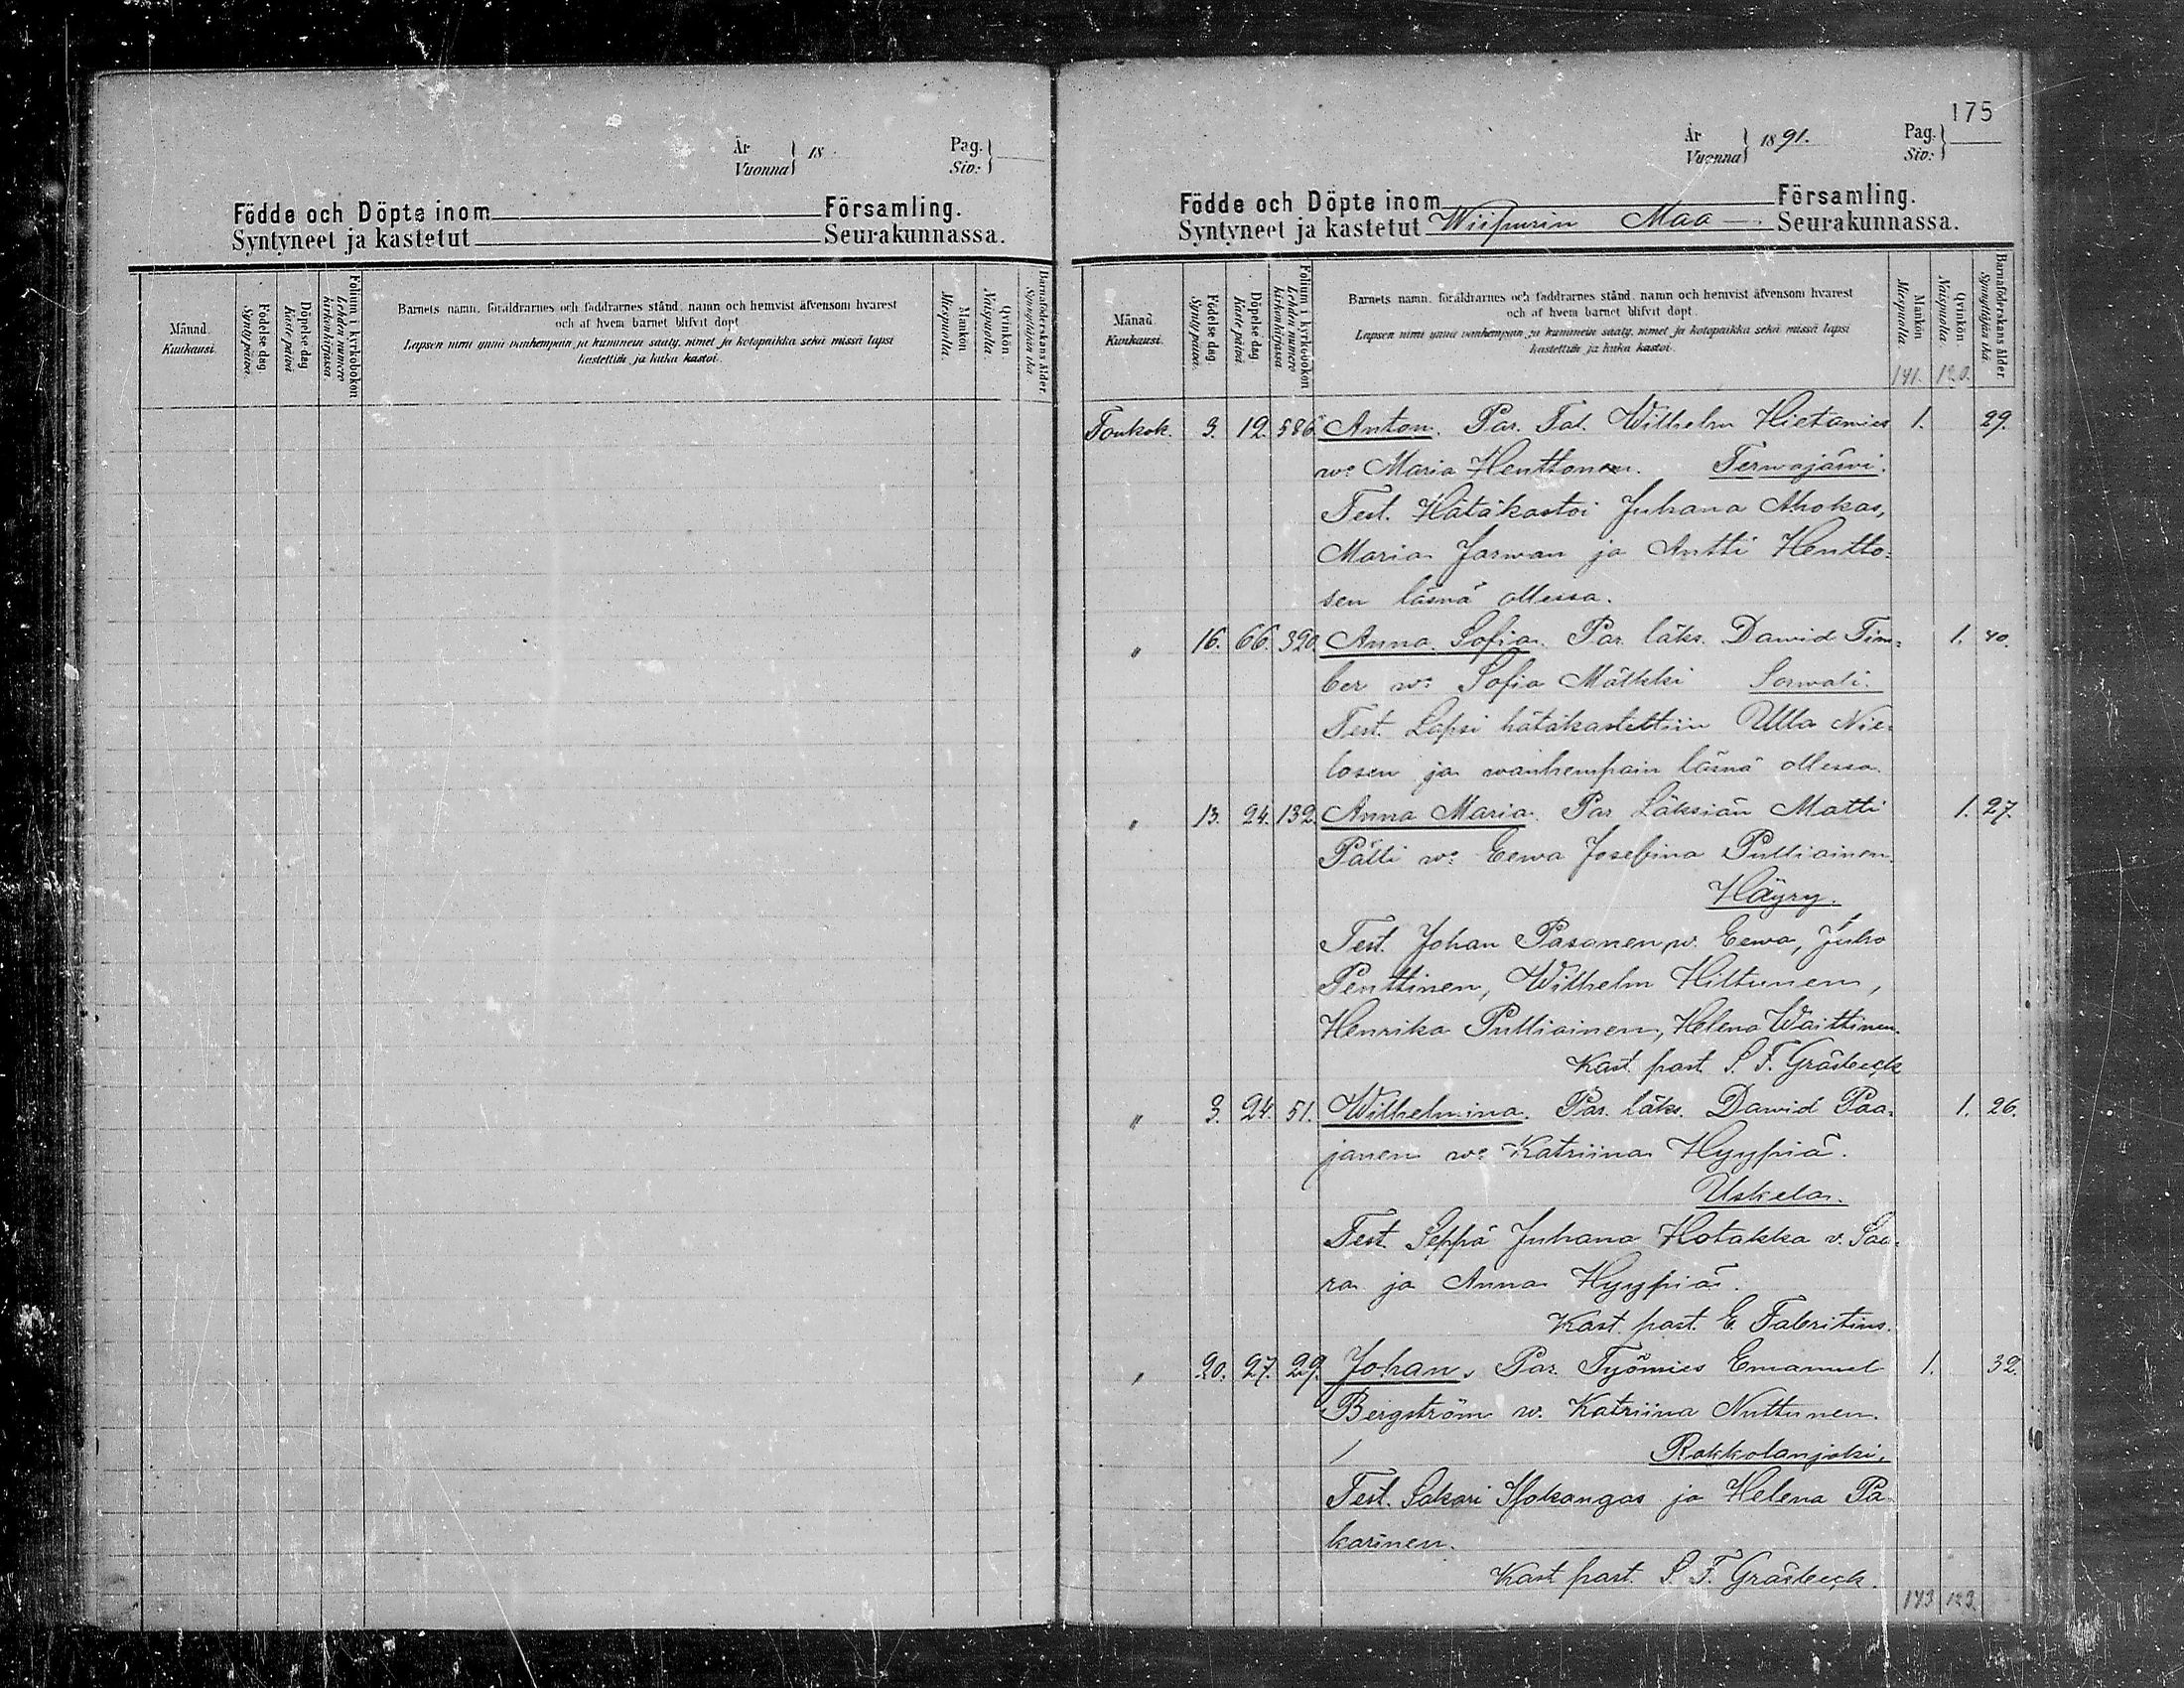 År
Vuonna } 18
Pag.
Siv: }
Födde och Döpte inom Församling.
Syntyneet ja kastetut Seurakunnassa.
Månad.
Kuukausi.
Födelse dag.
Synty päivä.
Döpelse dag
Kaste päivä
Folium i kyrkoboken
Lehden numero
kirkonkirjassa.
Barnets namn, föräldrarnes och faddrarnes stånd, namn och hemvist äfvensom hvarest
och af hvem barnet blifvit döpt
Lapsen nimi ynnä vanhempain ja kummein sääty, nimet ja kotopaikka sekä missä lapsi
kastettiin ja kuka kastoi.
Mankön
Miespuolia.
Qvinkön
Naispuolia.
Barnaföderskans ålder.
Synnyttäjän ikä.
175
År
Vuonna } 1891.
Pag.
Siv: }
Födde och Döpte inom Församling.
Syntyneet ja kastetut Wiipurin Maa- Seurakunnassa.
Månad.
Kuukausi.
Födelse dag.
Synty päivä.
Döpelse dag
Kaste päivä.
Folium i kyrkoboken
Lehden numero
kirkonkirjassa
Barnets namn, föräldrarnes och faddrarnes stånd, namn och hemvist äfvensom hvarest
och af hvem barnet blifvit döpt.
Lapsen nimi ynnä vanhempain ja kummein sääty, nimet ja kotopaikka sekä missä lapsi
kastettiin ja kuka kastoi.
Mankön
Miespuolia.
Qvinkön
Naispuolia.
Barnaföderskans ålder.
Synnyttäjän ikä.
141. 120.
Toukok. 3. 12. 586. Anton. Par. Tal. Wilhelm Hietamies 1. 29.
w: Maria Henttonen. Terwajärwi.
Test. Hätäkastoi Juhana Ahokas,
Maria Jarwan ja Antti Hentto-
sen läsnä ollessa.
" 16. 66. 320. Anna Sofia. Par. läks. Dawid Tim- 1. 40.
ber w: Sofia Mälkki Sorwali.
Test. Lapsi hätäkastettiin Ulla Nie-
losen ja wanhempain läsnä ollessa.
" 13. 24. 132. Anna Maria. Par Läksiän Matti 1. 27.
Pälli w: Eewa Josefina Pulliainen.
Häyry.
Test. Johan Pasanen w. Eewa, Juho
Penttinen, Wilhelm Hiltunen,
Henrika Pulliainen, Helena Waittinen.
Kast. past. S. F. Gråsbeck
" 3. 24. 51. Wilhelmina. Par. läks. Dawid Paa- 1. 26.
janen w: Katriina Hyypiä.
Uskela.
Test. Seppä Juhana Hotakka v. Saa-
ra ja Anna Hyypiä.
Kast. past. E. Fabritius.
" 20. 27. 29. Johan, Par. Työmies Emanuel 1. 32.
Bergström w. Katriina Nuttunen.
Rakkolanjoki.
Test. Sakari Isokangas ja Helena Pa-
karinen.
Kast past. S. F. Gråsbeck.
143 123.